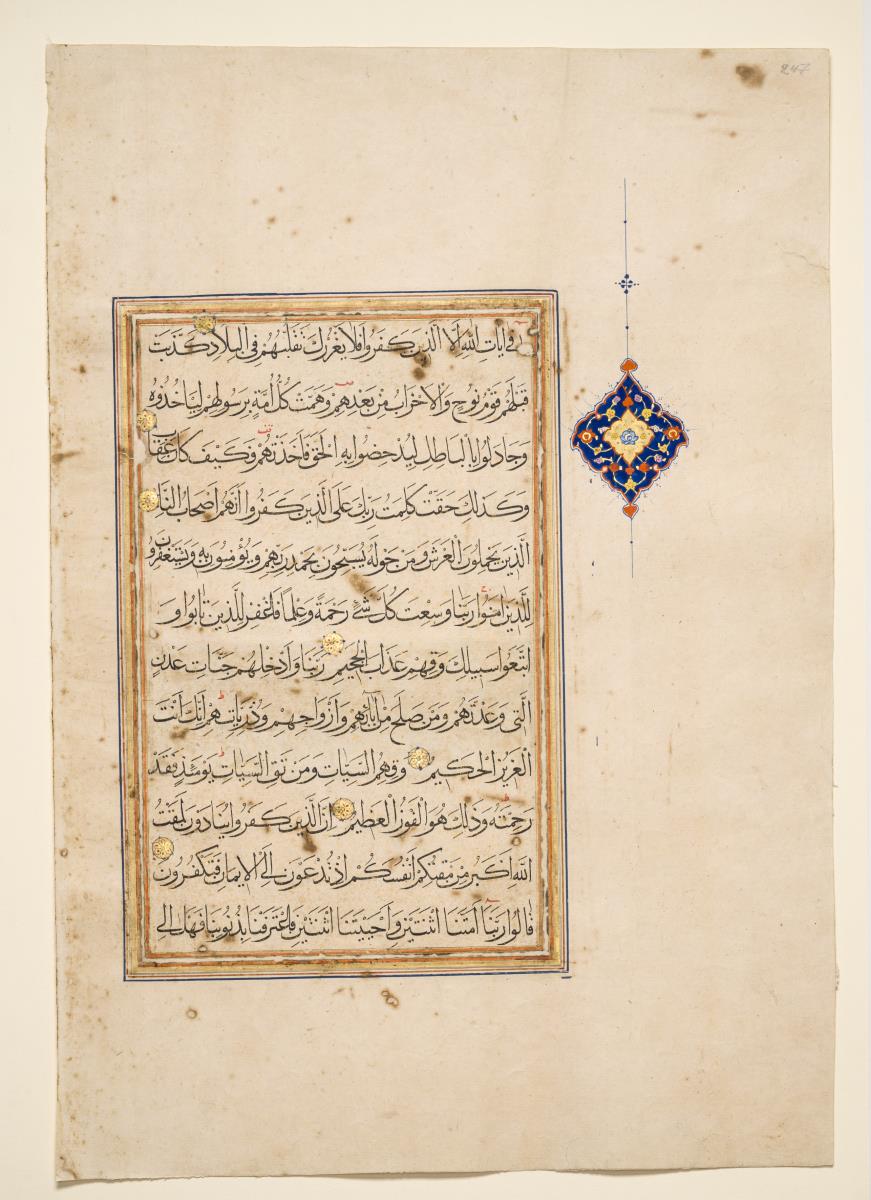 247
في ايات الله الا الذين كفروا فلا يغررك تقلبهم في البلاد كذبت
قبلهم قوم نوح والاحزاب من بعدهم وهمت كل امة برسولهم لياخذوه
وجادلوا بالباطل ليدحضوا به الحق فاخذتهم فكيف كان عقاب
وكذلك حقت كلمت ربك على الذين كفروا انهم اصحاب النار
الذين يحملون العرش ومن حوله يسبحون بحمد ربهم ويؤمنون به ويستغفرون
للذين امنوا ربنا وسعت كل شئ رحمة وعلما فاغفر للذين تابوا و
اتبعوا سبيلك وقهم عذاب الجحيم ربنا وادخلهم جنات عدن
التي وعدتهم ومن صلح من آبائهم وازواجهم وذرياتهم انك انت
العزيز الحكيم وقهم السيات ومن تق السيات يومئذ فقد
رحمته وذلك هو الفوز العظيم ان الذين كفروا ينادون لمقت
الله اكبر من مقتكم انفسكم اذ تدعون الى الايمان فتكفرون
قالوا ربنا امتنا اثنتين واحييتنا اثنتين فاعترفنا بذنوبنا فهل الى